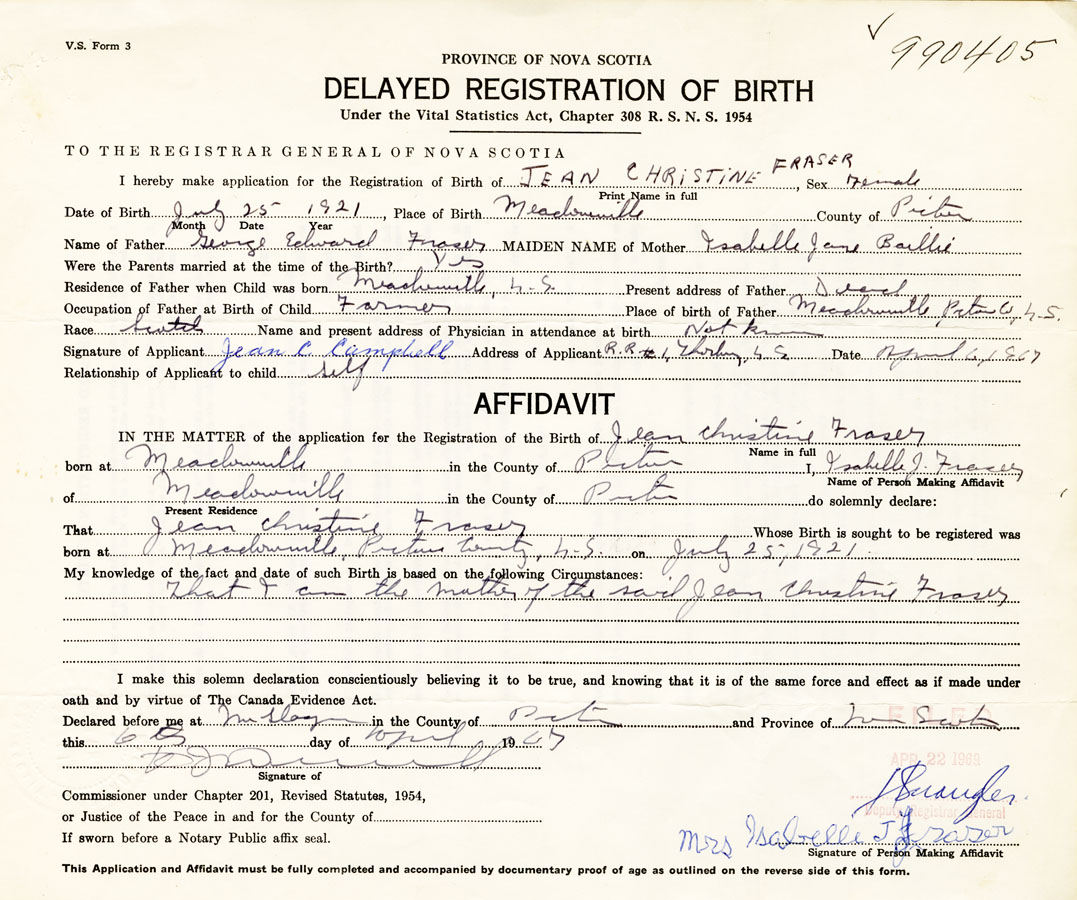 V.S. Form 3
990405
PROVINCE OF NOVA SCOTIA
DELAYED REGISTRATION OF BIRTH
Under the Vital Statistics Act, Chapter 308 R. S. N. S. 1954
TO THE REGISTRAR GENERAL OF NOVA SCOTIA
I hereby make application for the Registration of Birth of JEAN CHRISTINE FRASER, Sex Female
Print Name in full
Date of Birth July 25 1921, Place of Birth Meadowville County of Pictou
Month Date Year
Name of Father George Edward Fraser MAIDEN NAME of Mother Isabelle Jane Baillie
Were the Parents married at the time of the Birth? Yes
Residence of Father when Child was born Meadowville, N.S. Present address of Father Dead
Occupation of Father at Birth of Child Farmer Place of birth of Father Meadowville, Pictou Co, N.S.
Race Scotch Name and present address of Physician in attendance at birth Not known
Signature of Applicant Jean C. Campbell Address of Applicant R.R. #1, Thorburn, N.S. Date April 6, 1967
Relationship of Applicant to child self
AFFIDAVIT
IN THE MATTER of the application for the Registration of the Birth of Jean Christine Fraser
Name in full
born at Meadowville in the County of Pictou I, Isabelle J. Fraser
Name of Person Making Affidavit
of Meadowville in the County of Pictou do solemnly declare:
Present Residence
That Jean Christine Fraser Whose Birth is sought to be registered was
born at Meadowville, Pictou County, N.S. on July 25, 1921.
My knowledge of the fact and date of such Birth is based on the following Circumstances:
That I am the mother of the said Jean Christine Fraser
I make this solemn declaration conscientiously believing it to be true, and knowing that it is of the same force and effect as if made under
oath and by virtue of The Canada Evidence Act.
Declared before me at in the County of Pictou and Province of Nova Scotia
FILED
this 6th day of April 1967
APR 22 1969
Signature of
Commissioner under Chapter 201, Revised Statutes, 1954,
Deputy Registrar General
or Justice of the Peace in and for the County of
Mrs Isabelle J Fraser
If sworn before a Notary Public affix seal.
Signature of Person Making Affidavit
This Application and Affidavit must be fully completed and accompanied by documentary proof of age as outlined on the reverse side of this form.